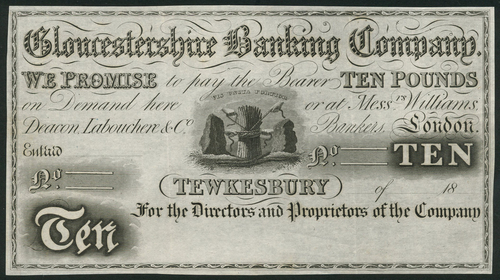 Gloucestershire Banking Company.
WE PROMISE to pay the Bearer TEN POUNDS
VIS UNITA FORTIOR
on Demand here or at Mess.rs Williams,
Deacon, Labouchere & Co. Bankers, London.
Entd
No. No. TEN
TEWKESBURY of 18
For the Directors and Proprietors of the Company
Ten